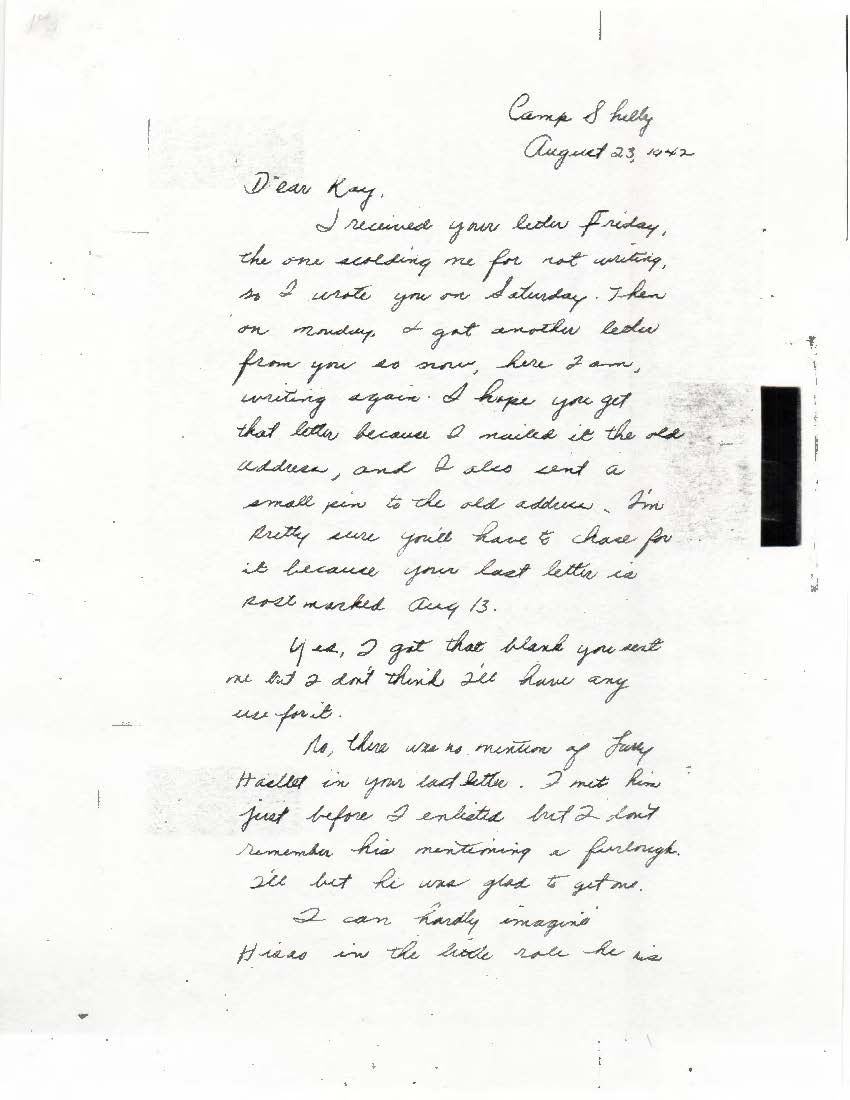 Camp Shelly
August 23, 1942
Dear Kay,
I received your letter Friday,
the one scolding me for not writing,
so I wrote you on Saturday. Then
on Monday, I got another letter
from you so now, here I am,
writing again. I hope you get
that letter because I mailed it the old
address, and I also sent a
small pin to the old address. I'm
pretty sure you'll have to chase for
it because your last letter is
post marked Aug 13.
Yes, I got that blank you sent
me but I don't think I'll have any
use for it.
No, there was no mention of
in your last letter. I met him
just before I enlisted but I don't
remember his mentioning a furlough.
I'll bet he was glad to get one.
I can hardly imagine
Hisao in the little role he is